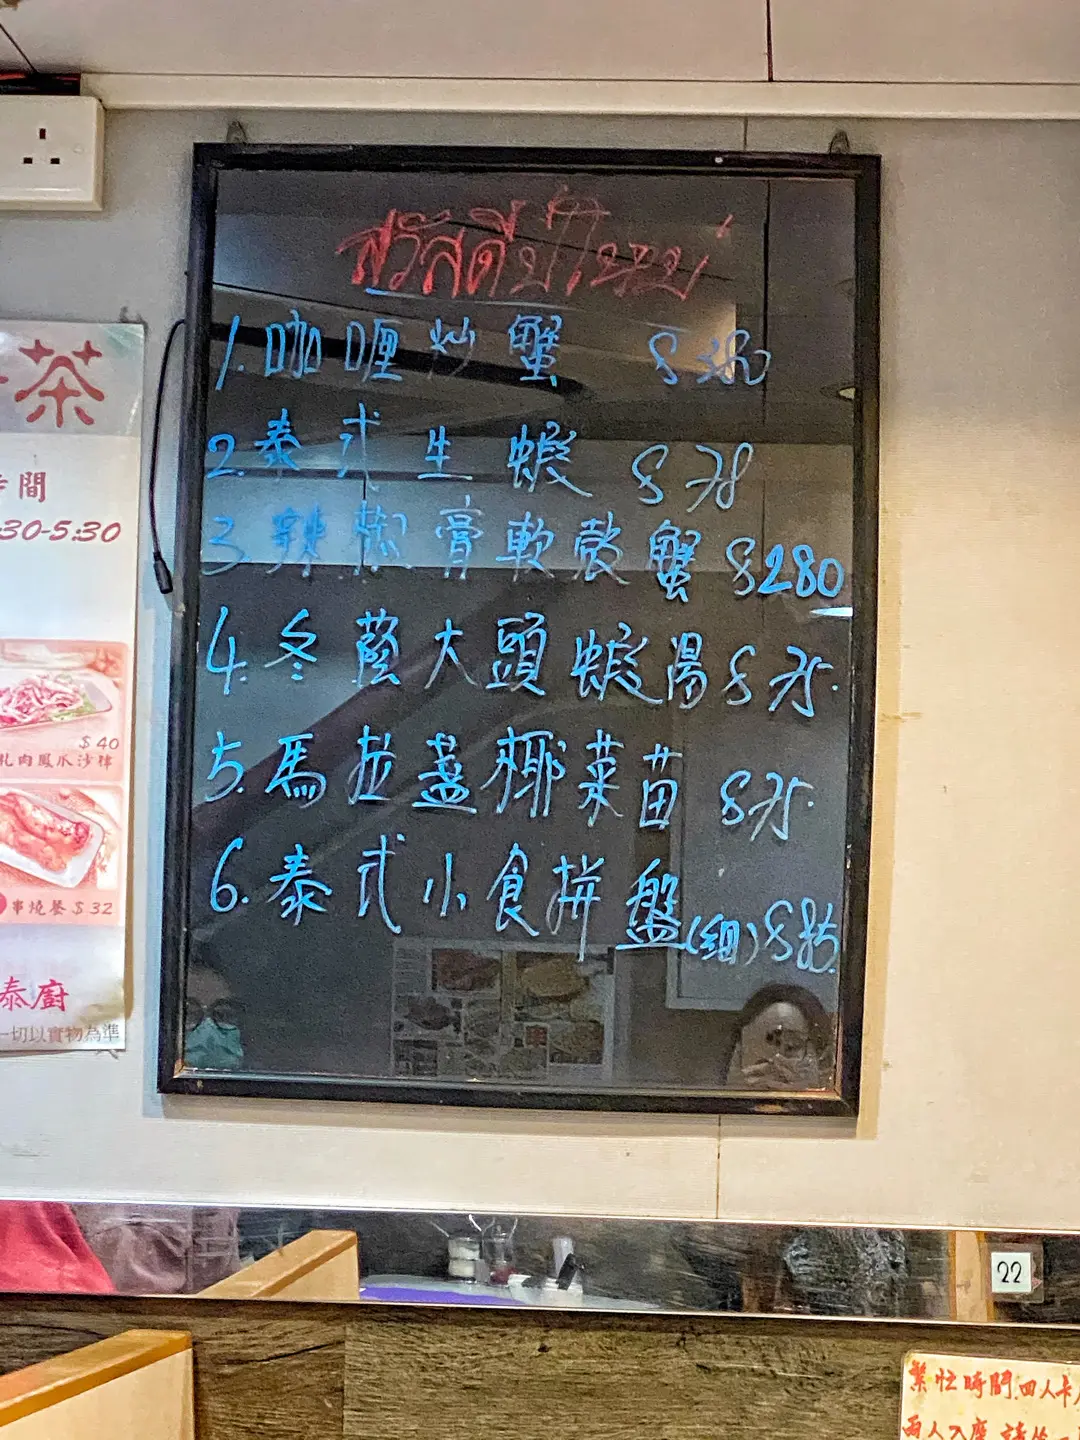 สวัสดีปีใหม่
1. 咖喱炒蟹
2. 泰式生蝦 $78
3. 膏軟殼蟹 $280
4. 冬蔭大頭蝦湯 $75.
5. 馬拉盞椰菜苗 $75.
6. 泰式小食拼盤(細) $85.
茶
時間
30-5:30
$40
扎肉鳳爪沙律
串燒餐 $32
泰廚
一切以實物為準
22
繁忙時間.四人卡
兩人入座